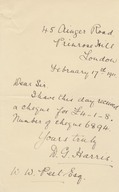 45 Ainger Road
Primrose Hill
London
February 17th
Dear Sir.
I have this day received
a cheque for £4-1-8,
Number of cheque 6894.
Yours truly
D. G. Harris.
W. W. Peel. Esq.